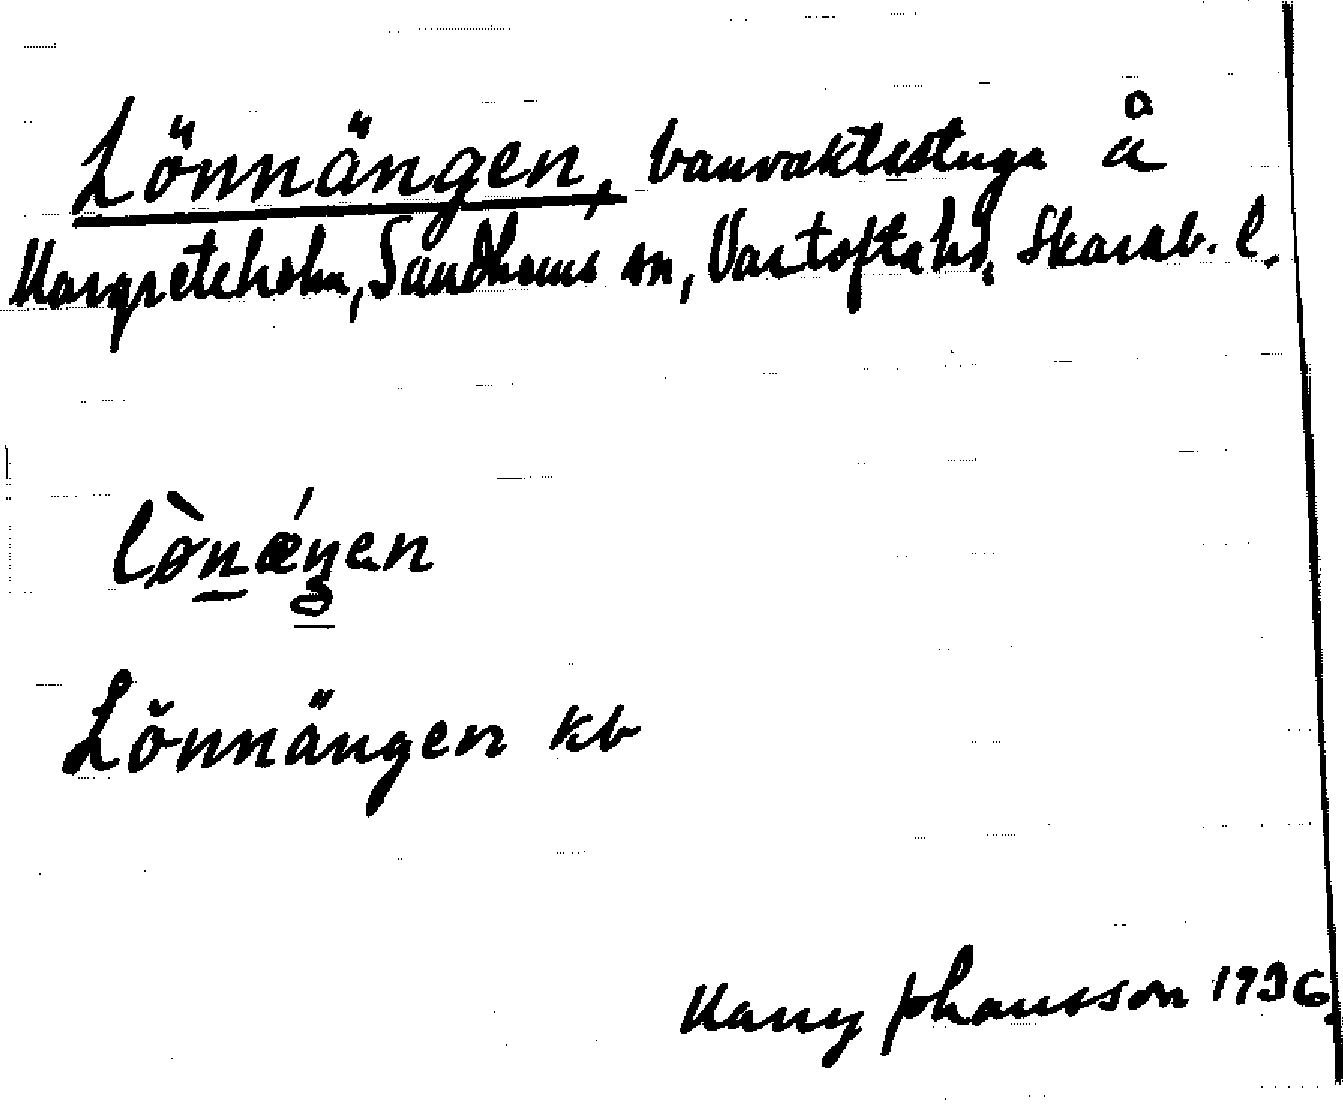 Lönnängen, banvaktsstuga å
Margreteholm, Sandhems sn, Vartofta hd, Skarab. l.
lø̀nǽŋen
Lönnängen kb
Manny Johansson 1936.